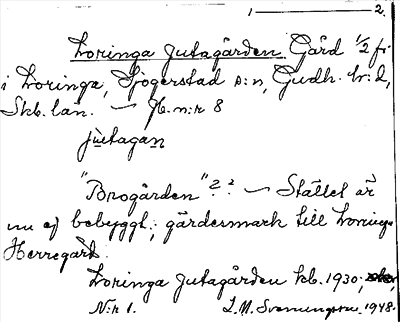 1 — 2.
Loringa Jutagården. Gård 1/2 fr
i Loringa, Sjogerstad s:n, Gudh. h:d,
Skb. län. — Jb. n:r 8
jùtagan
"Brogården" 2 2 — Stället är
nu ej bebyggt; gärdesmark till Loringa
Herregård.
Loringa Jutagården kb. 1930,
N:r 1. L.M. Svenungsson. 1948.